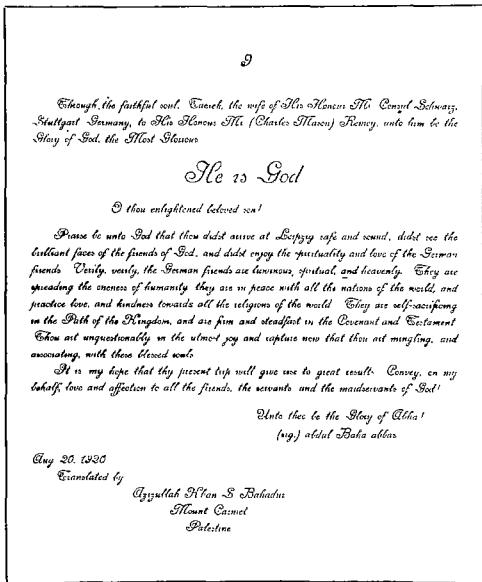 9
Through, the faithful soul, Tuereh, the wife of His Honour Mr Consul Schwarz,
Stuttgart Germany, to His Honour Mr (Charles Mason) Remey, unto him be the
Glory of God, the Most Glorious
He is God
O thou enlightened beloved son!
Praise be unto God that thou didst arrive at Leipzig safe and sound, didst see the
brilliant faces of the friends of God, and didst enjoy the spirituality and love of the German
friends Verily, verily, the German friends are luminous, spiritual, and heavenly. They are
spreading the oneness of humanity they are in peace with all the nations of the world, and
practice love, and kindness towards all the religions of the world They are self-sacrificing
in the Path of the Kingdom, and are firm and steadfast in the Covenant and Testament
Thou art unquestionably in the utmost joy and rapture now that thou art mingling, and
associating, with these blessed souls
It is my hope that thy present trip will give rise to great results Convey, on my
behalf, love and affection to all the friends, the servants and the maidservants of God!
Unto thee be the Glory of Abha!
(sig.) abdul Baha abbas
Aug 20. 1920
Translated by
Azizullah Khan S Bahadur
Mount Carmel
Palestine